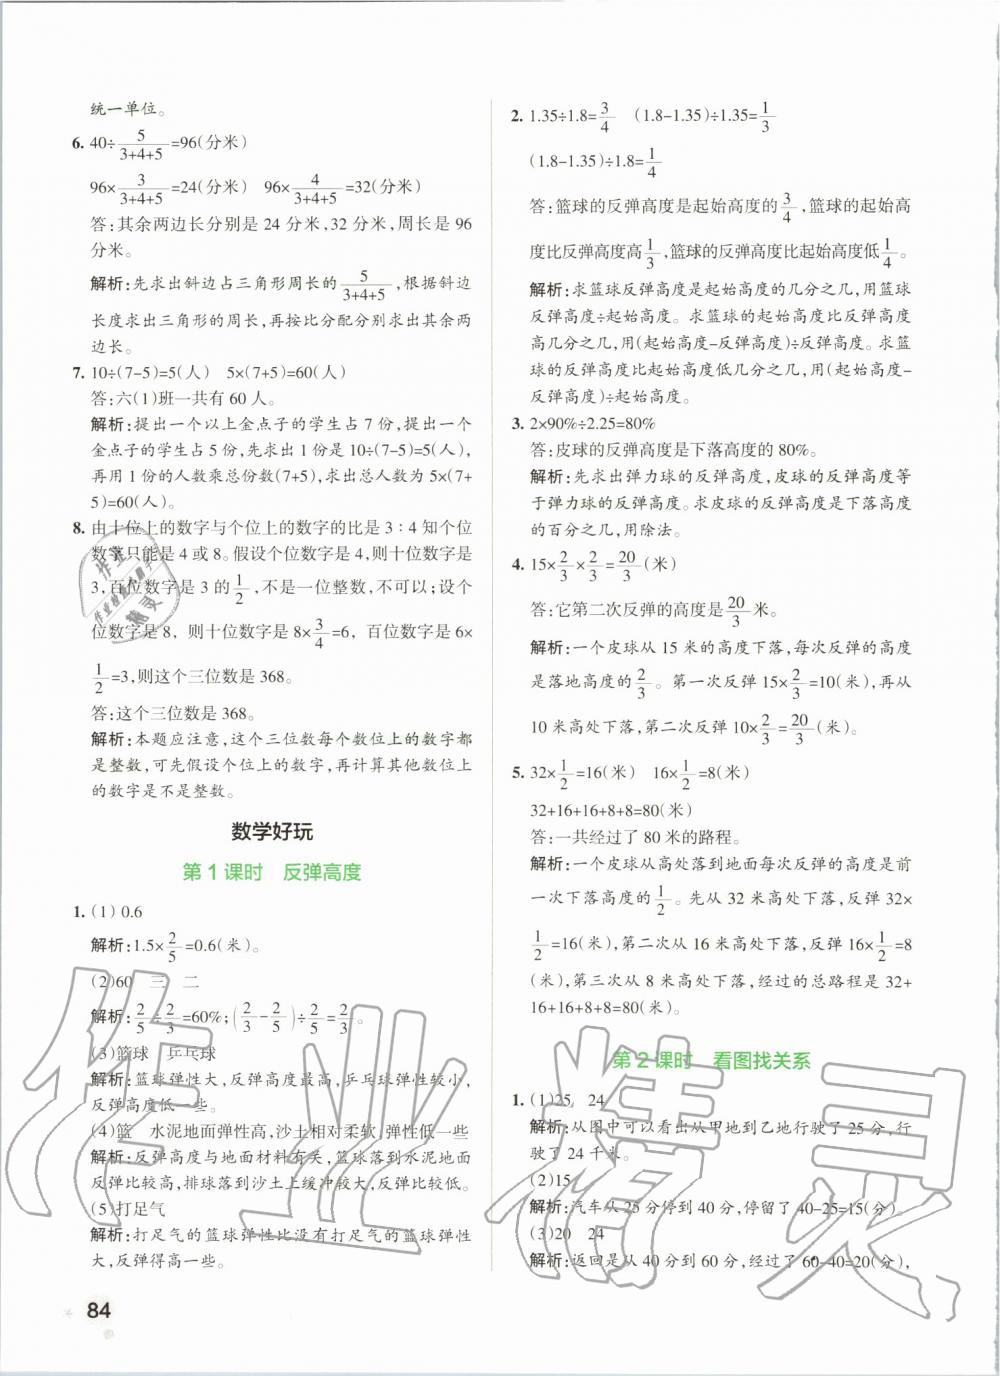 统一单位。
6. 40÷5/(3+4+5)=96(分米)
96×3/(3+4+5)=24(分米) 96×4/(3+4+5)=32(分米)
答:其余两边长分别是 24 分米,32 分米,周长是 96
分米。
解析:先求出斜边占三角形周长的5/(3+4+5),根据斜边
长度求出三角形的周长,再按比分配分别求出其余两
边长。
7. 10÷(7-5)=5(人) 5×(7+5)=60(人)
答:六(1)班一共有 60 人。
解析:提出一个以上金点子的学生占 7 份,提出一个
金点子的学生占 5 份,先求出 1 份是 10÷(7-5)=5(人),
再用 1 份的人数乘总份数(7+5),求出总人数 5×(7+
5)=60(人)。
8. 由十位上的数字与个位上的数字的比是 3∶4知个位
数字只能是 4 或 8。假设个位数字是 4,则十位数字是
3,百位数字是 3 的1/2,不是一位整数,不可以;设个
位数字是 8，则十位数字是 8×3/4=6，百位数字是 6×
1/2=3,则这个三位数是 368。
答:这个三位数是 368。
解析:本题应注意,这个三位数每个数位上的数字都
是整数,可先假设个位上的数字,再计算其他数位上
的数字是不是整数。
数学好玩
第 1 课时 反弹高度
1. (1) 0.6
解析:1.5×2/5=0.6(米)。
(2)60 三 二
解析:2/5÷2/3=60%;(2/3-2/5)÷2/5=2/3。
(3)篮球 乒乓球
解析:篮球弹性大,反弹高度最高,乒乓球弹性较大,
反弹高度低一些。
(4)篮 水泥地面弹性高,沙土相对柔软,弹性低一些
解析:反弹高度与地面材料有关,篮球落在水泥地面
反弹比较高,排球落到沙土上缓冲较大,反弹比较低。
(5)打足气
解析:打足气的篮球弹性比没有打足气的篮球弹性
大,反弹得高一些。
84
2. 1.35÷1.8=3/4 (1.8-1.35)÷1.35=1/3
(1.8-1.35)÷1.8=1/4
答:篮球的反弹高度是起始高度的3/4,篮球的起始高
度比反弹高度高1/3,篮球的反弹高度比起始高度低1/4。
解析:求篮球反弹高度是起始高度的几分之几,用篮球
反弹高度÷起始高度。求篮球的起始高度比反弹高度
高几分之几,用(起始高度-反弹高度)÷反弹高度。求篮
球的反弹高度比起始高度低几分之几,用(起始高度-
反弹高度)÷起始高度。
3. 2×90%÷2.25=80%
答:皮球的反弹高度是下落高度的 80%。
解析:先求出弹力球的反弹高度,皮球的反弹高度等
于弹力球的反弹高度。求皮球的反弹高度是下落高度
的百分之几,用除法。
4. 15×2/3×2/3=20/3(米)
答:它第二次反弹的高度是20/3米。
解析:一个皮球从 15 米的高度下落,每次反弹的高度
是落地高度的2/3。第一次反弹 15×2/3=10(米),再从
10 米高处下落,第二次反弹 10×2/3=20/3(米)。
5. 32×1/2=16(米) 16×1/2=8(米)
32+16+16+8+8=80(米)
答:一共经过了 80 米的路程。
解析:一个皮球从高处落到地面每次反弹的高度是前
一次下落高度的1/2。先从 32 米高处下落,反弹 32×
1/2=16(米),第二次从 16 米高处下落,反弹 16×1/2=8
(米),第三次从 8 米高处下落,经过的总路程是 32+
16+16+8+8=80(米)。
第 2 课时 看图找关系
1. (1)25 24
解析:从图中可以看出从甲地到乙地行驶了 25 分,行
驶了 24 千米。
(2)15
解析:汽车从 25 分停到 40 分,停留了 40-25=15(分)。
(3)20 24
解析:返回是从 40 分到 60 分,经过了 60-40=20(分),
作业精灵